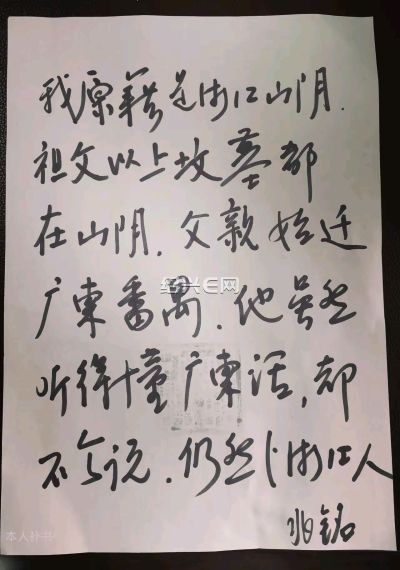 我原籍是浙江山阴.
祖父以上坟墓都
在山阴.父親始迁
广東番禺.他虽然
绍兴E网
听得懂广東话,都
不会说.仍然浙江人
兆铭
本人抄书